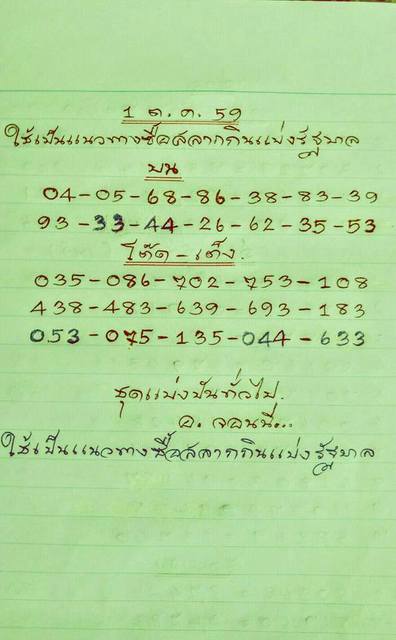 1 ต.ค. 59
ใช้เป็นแนวทางซื้อสลากกินแบ่งรัฐบาล
บน
04-05-68-86-38-83-39
93-33-44-26-62-35-53
โต๊ด-เต็ง.
035-086-702-753-108
438-483-639-693-183
053-075-135-044-633
ชุดแบ่งปันทั่วไป.
อ. จอนนี่...
ใช้เป็นแนวทางซื้อสลากกินแบ่งรัฐบาล